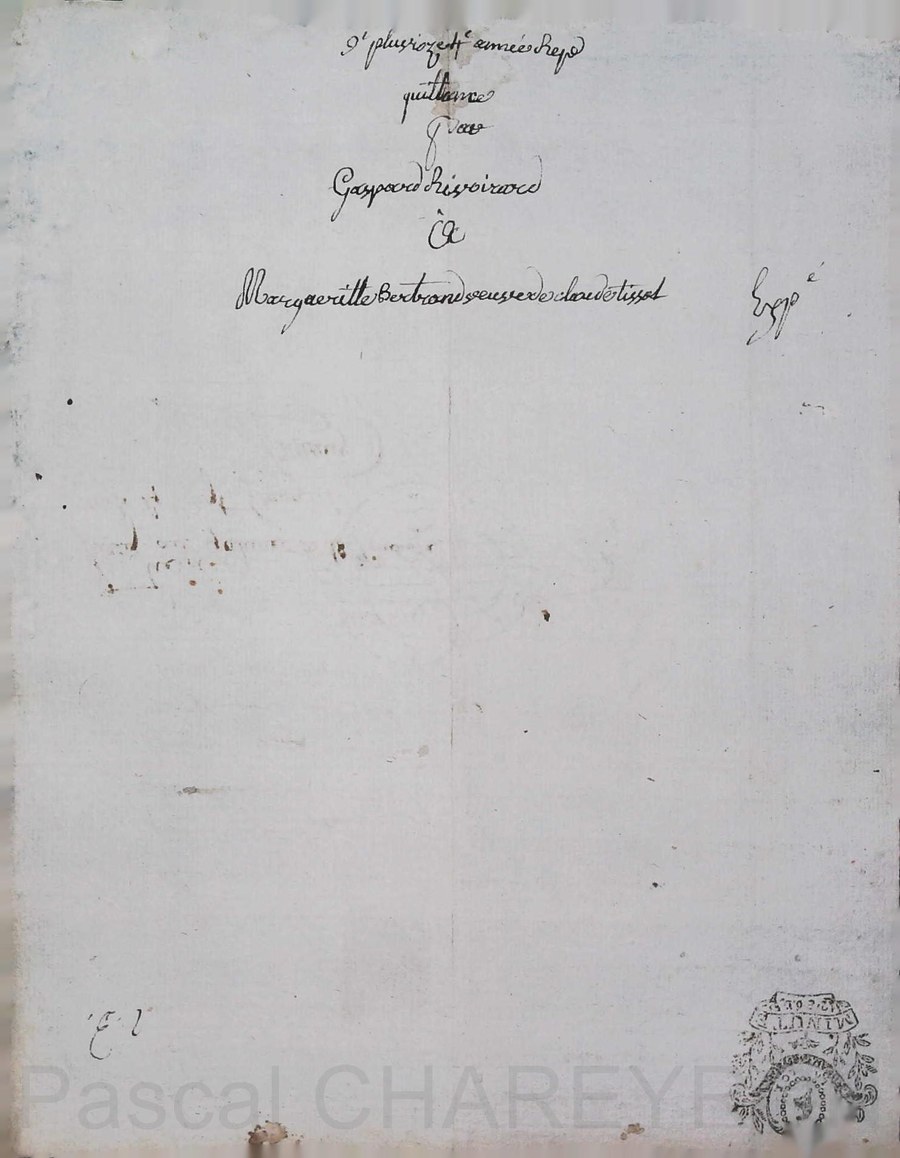 9e pluvioze 4e année Rep
quittance
par
Gaspard Rivoirard
à
Margueritte Bertrand veuve de claude tissot
Exp é
E. l
MINUTE
Pascal CHAREYE